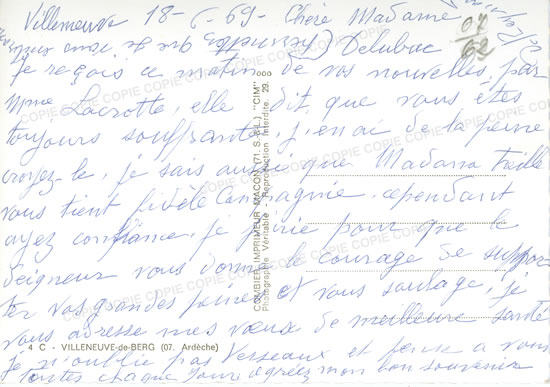 Villeneuve 18-6-69- Chère Madame
(Permettez que je vous Delubac
07
62
je reçois ce matin de vos nouvelles, par
Mme Lacrotte elle dit que vous êtes
toujours souffrante, j'en ai de la peine
croyez-le, je sais aussi que Madame
vous tient fidèle Compagnie, cependant
ayez confiance, je prie pour que le
Seigneur vous donne le courage de suppor-
ter vos grandes peines et vous soulage, je
vous adresse mes vœux de meilleure santé
je n'oublie pas Vesseaux et pense a vous
Toutes chaque jour agréez mon bon souvenir
COMBIER IMPRIMEUR MACON (71. S.-&-L.) "CIM"
Photographie Véritable - Reproduction Interdite. 29.
4 C - VILLENEUVE-de-BERG (07. Ardèche)
COPIE COPIE COPIE COPIE